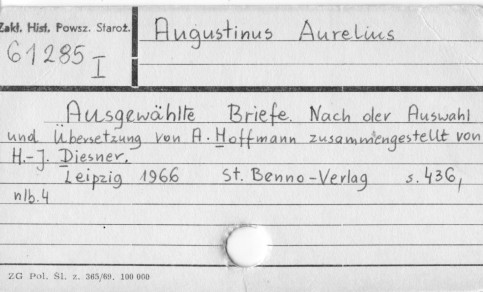 Zakł. Hist. Powsz. Staroż.
61285
I
Augustinus Aurelius
Ausgewählte Briefe. Nach der Auswahl
und Übersetzung von A. Hoffmann zusammengestellt von
H.-J. Diesner.
Leipzig 1966 St. Benno-Verlag s. 436,
nlb. 4
ZG Pol. Śl. z. 365/69. 100 000